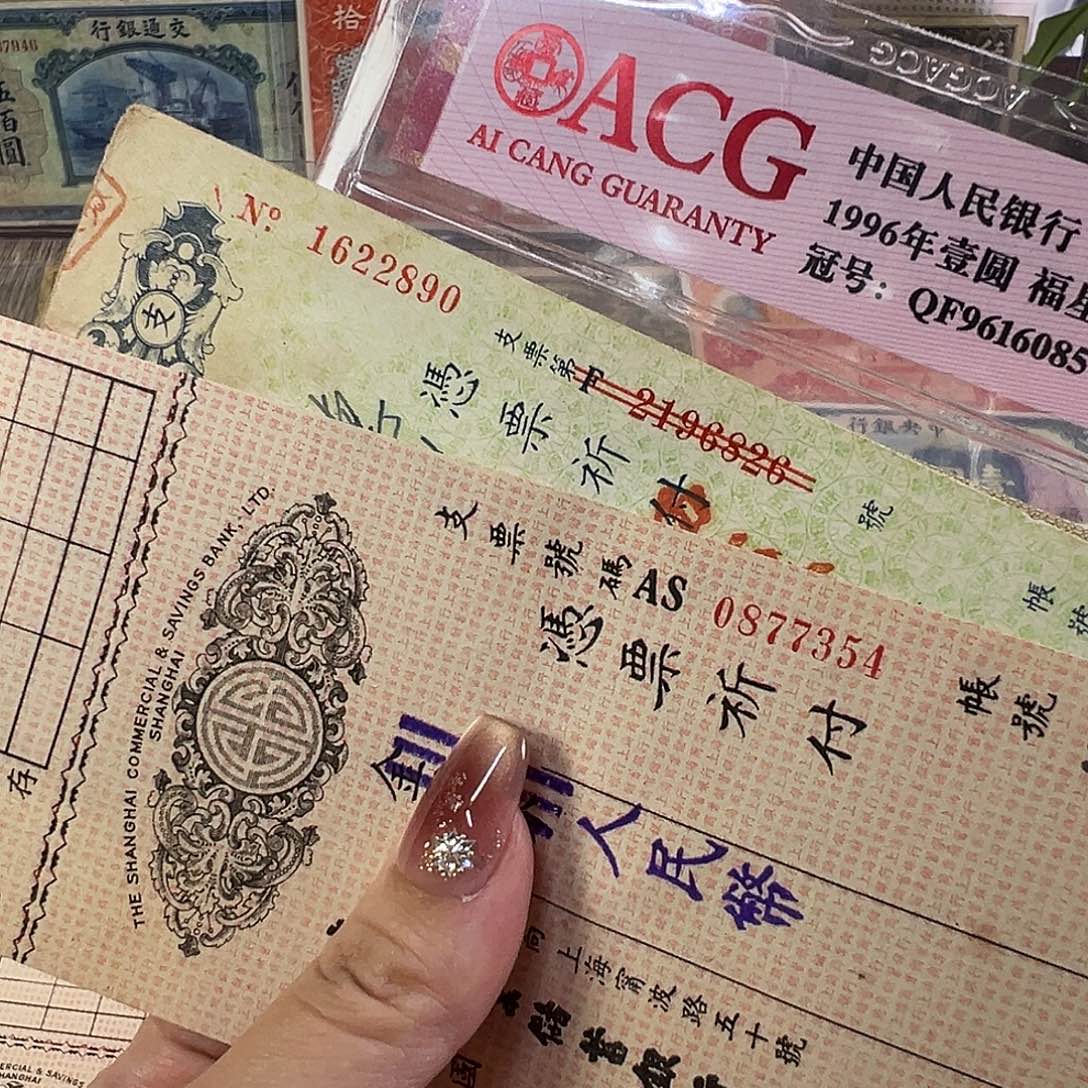 行銀通交
37946
伍佰圓
拾
ACG
AI CANG GUARANTY
中国人民银行
1996年壹圓 福星
冠号：QF9616085
ACGACG
行銀央中
Nº 1622890
支
支票第 2196826 號
憑票祈付
帳號
支票號碼 AS 0877354
憑票祈付
帳號
THE SHANGHAI COMMERCIAL & SAVINGS BANK, LTD.
SHANGHAI
存
人民幣
上海甯波路五十號
儲蓄銀
國
ERCIAL & SAVINGS
HANGHAI